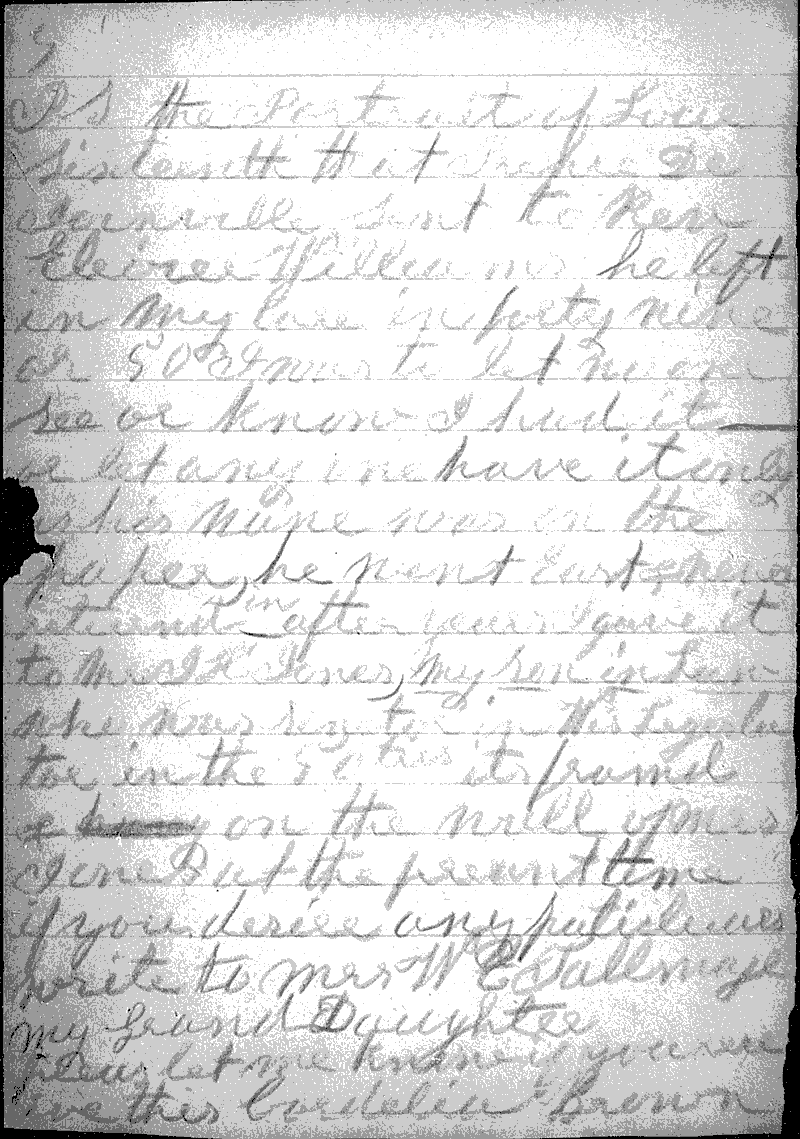 P S the Portrait of Louis
sixteenth that Prince De
Joinville sent to Rev
Eleazer Williams he left
in my care in forty nine
or 50 & I was to let no one
see or know I had it —
or let any one have it only
as his name was on the
paper, he went East & never
returnd in after years I gave it
to Mrs J R Jones, my son in Law
who was senator in Wis Legisla
tor in the 50ties its framd
& on the wall of Mrs
Jones at the preant time
if you desire any paticluars
write to Mrs W E Tallmage
my Grand Daughter
pleas let me know if you rece
ive this Cordelia Brown